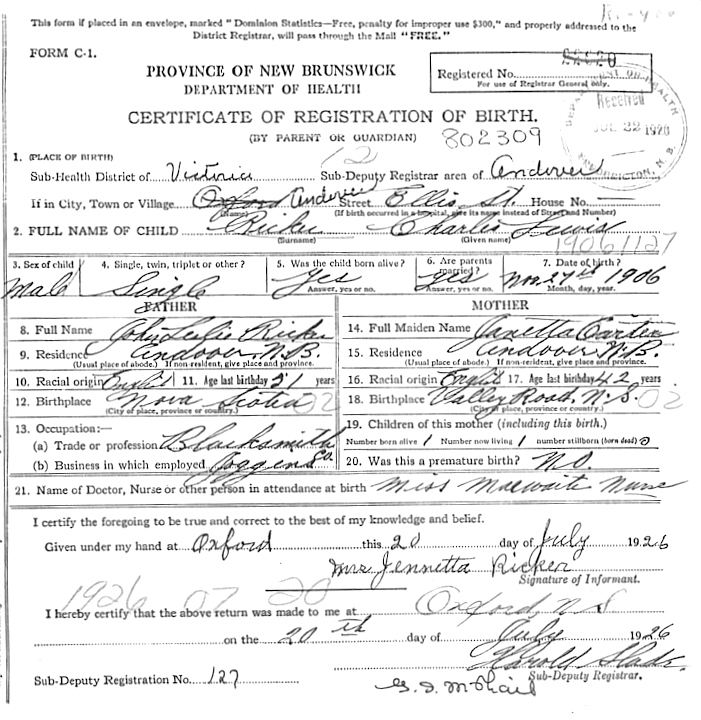 This form if placed in an envelope, marked "Dominion Statistics—Free, penalty for improper use $300," and properly addressed to the
District Registrar, will pass through the Mail "FREE."
FORM C-1.
PROVINCE OF NEW BRUNSWICK
DEPARTMENT OF HEALTH
Registered No.
For use of Registrar General only.
DEPARTMENT OF HEALTH
Received
JUL 22 1926
FREDERICTON, N. B.
CERTIFICATE OF REGISTRATION OF BIRTH.
(BY PARENT OR GUARDIAN)
802309
12
1. (PLACE OF BIRTH)
Sub-Health District of Victoria Sub-Deputy Registrar area of Andover
If in City, Town or Village Oxford Andover Street Ellis St. House No. —
(Name) (If birth occurred in a hospital, give its name instead of Street and Number)
2. FULL NAME OF CHILD Ricker Charles Lewis
(Surname) (Given name)
19061127
3. Sex of child 4. Single, twin, triplet or other? 5. Was the child born alive? 6. Are parents married? 7. Date of birth?
Male Single Yes Yes Nov. 27th 1906
Answer, yes or no. Answer, yes or no. Month, day, year.
FATHER
8. Full Name John Leslie Ricker
9. Residence Andover N.B.
(Usual place of abode.) If non-resident, give place and province.
10. Racial origin English 11. Age last birthday 21 years
12. Birthplace Nova Scotia 02
(City of place, province or country.)
13. Occupation:—
(a) Trade or profession Blacksmith
(b) Business in which employed Joggins Co.
MOTHER
14. Full Maiden Name Janetta Carter
15. Residence Andover N.B.
(Usual place of abode.) If non-resident, give place and province.
16. Racial origin English 17. Age last birthday 42 years
18. Birthplace Valley Road, N.S. 02
(City of place, province or country.)
19. Children of this mother (including this birth.)
Number born alive 1 Number now living 1 number stillborn (born dead) 0
20. Was this a premature birth? No.
21. Name of Doctor, Nurse or other person in attendance at birth Miss Nurse
I certify the foregoing to be true and correct to the best of my knowledge and belief.
Given under my hand at Oxford this 20 day of July 1926
Mrs Jennetta Ricker
Signature of Informant.
1926 07 20
I hereby certify that the above return was made to me at Oxford, N S
on the 20th day of July 1926
Harold Slade.
Sub-Deputy Registrar.
Sub-Deputy Registration No. 127